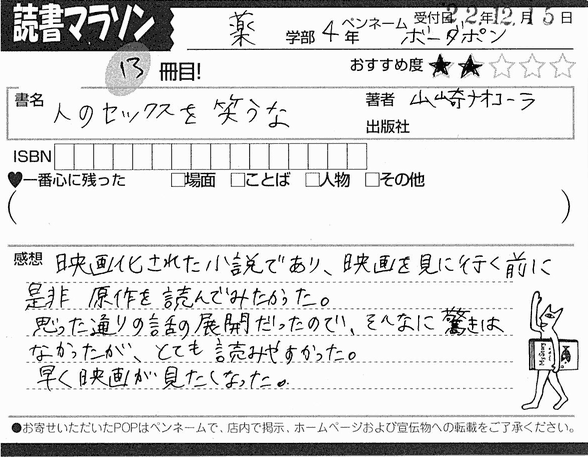 読書マラソン
薬 学部 4 年 ペンネーム ボーダポン 受付日 22年12月15日
13 冊目! おすすめ度 ★★☆☆☆
書名 人のセックスを笑うな 著者 山崎ナオコーラ
出版社
ISBN
♥一番心に残った □場面 □ことば □人物 □その他
( )
感想 映画化された小説であり、映画を見に行く前に
是非 原作を読んでみたかった。
思った通りの話の展開だったので、そんなに驚きは
なかったが、とても読みやすかった。
早く映画が見たくなった。
Mystery
●お寄せいただいたPOPはペンネームで、店内で掲示、ホームページおよび宣伝物への転載をご了承ください。